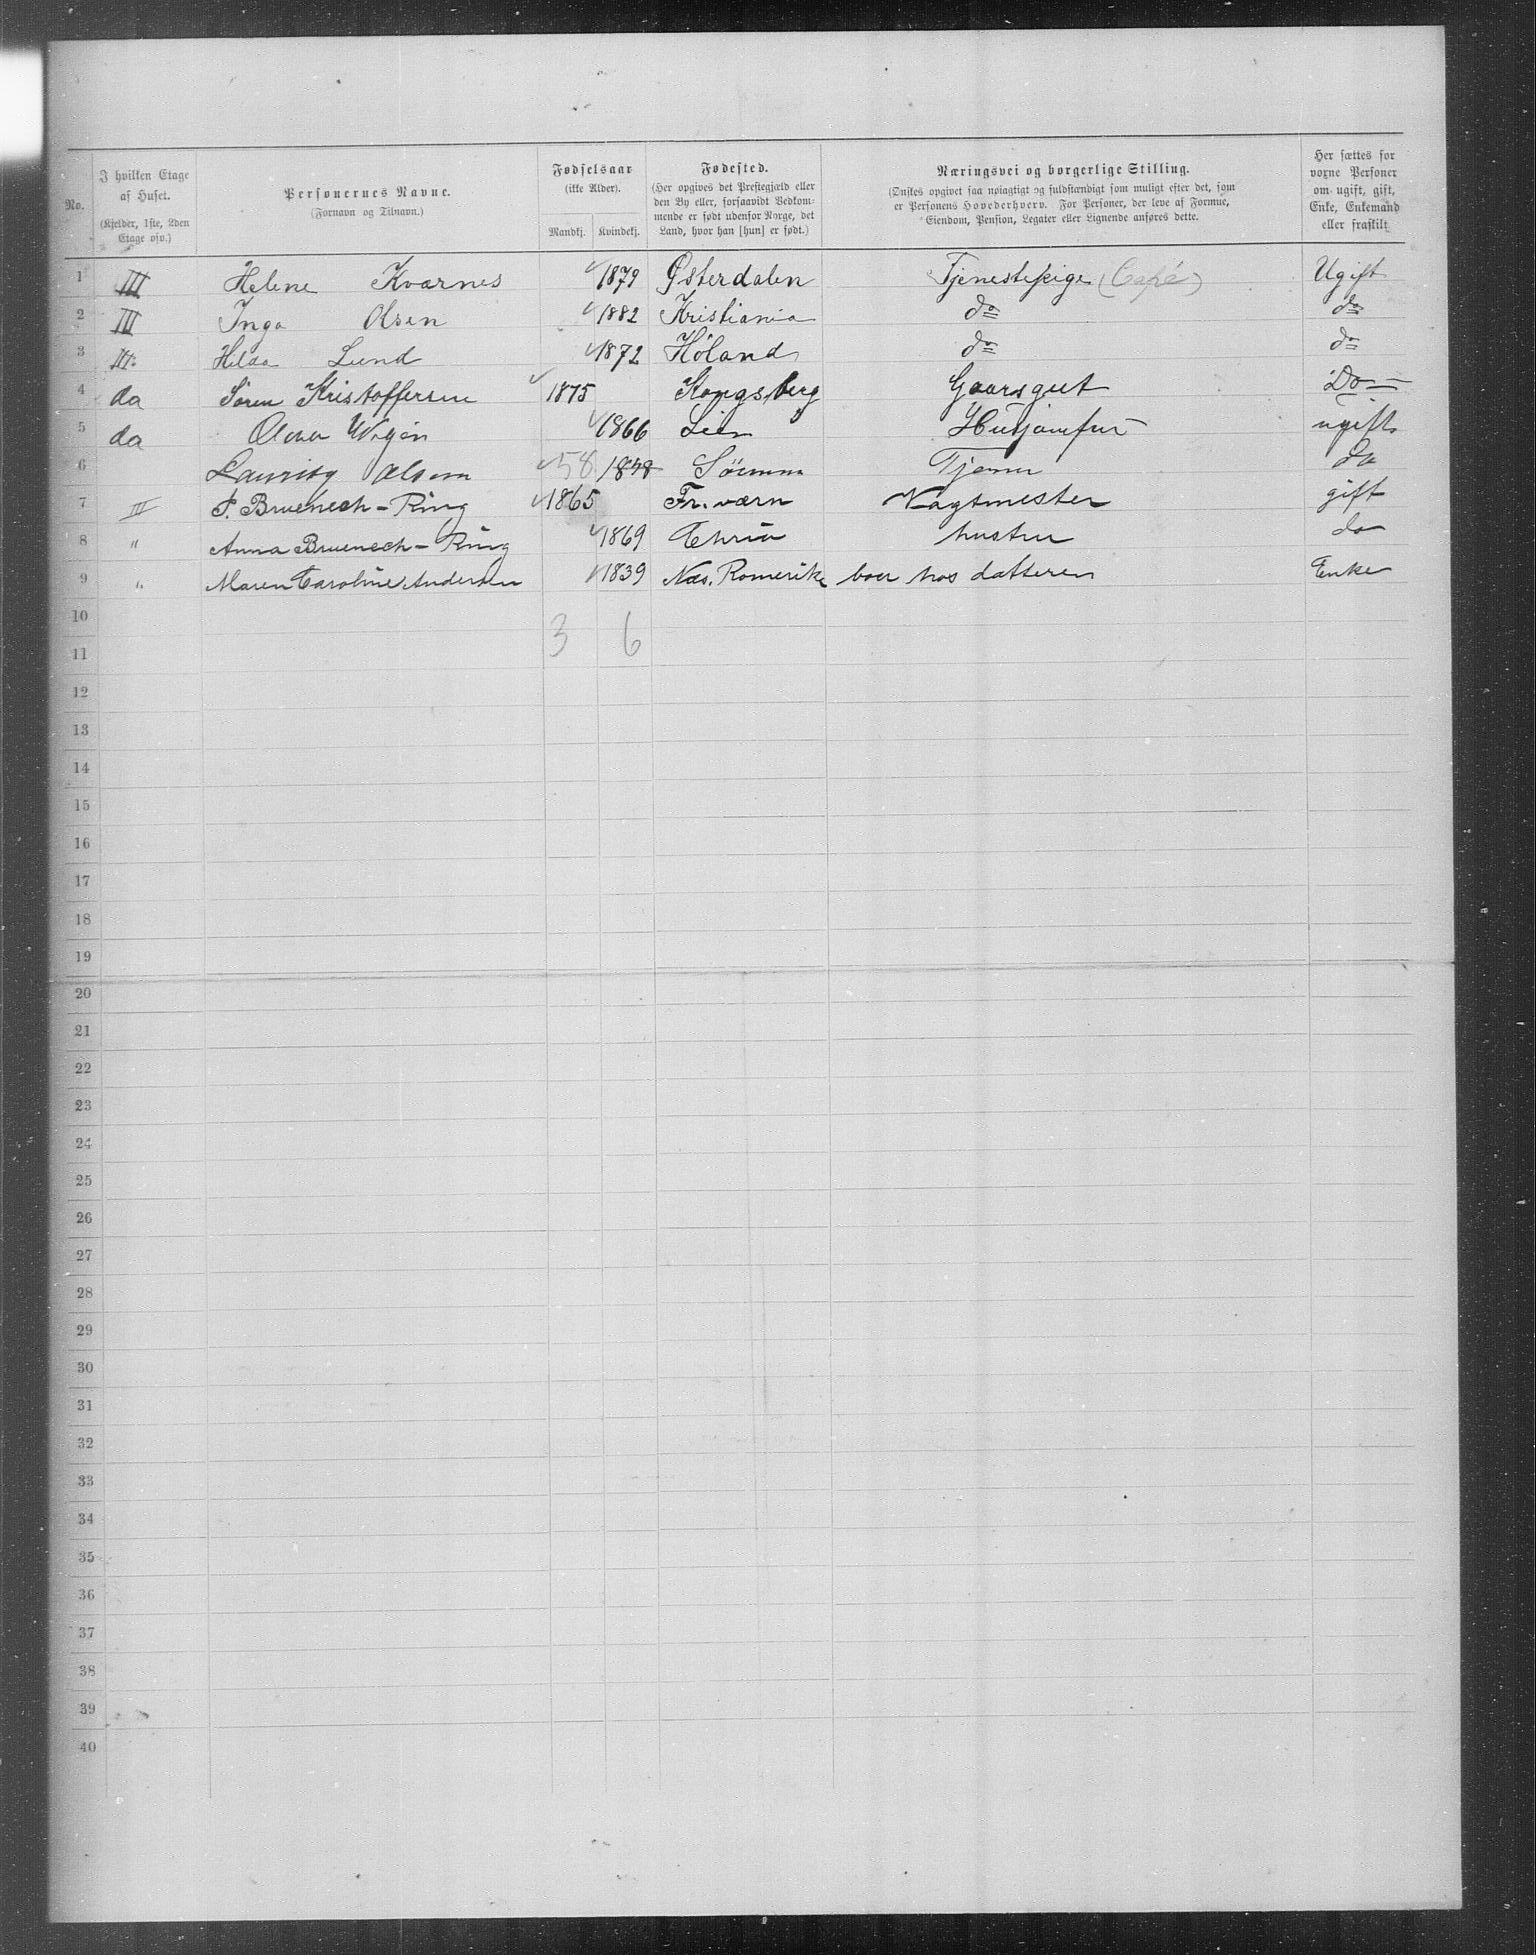 No. | I hvilken Etage af Huset. (Kjelder, 1ste, 2den Etage osv.) | Personernes Navne. (Fornavn og Tilnavn.) | Fødselsaar (ikke Alder). Mandkj. | Kvindekj. | Fødested. (Her opgives det Prestegjæld eller den By eller, forsaavidt Vedkommende er født udenfor Norge, det Land, hvor han [hun] er født.) | Næringsvei og borgerlige Stilling. (Ønskes opgivet saa nøiagtigt og fuldstændigt som muligt efter det, som er Personens Hovederhverv. For Personer, der leve af Formue, Eiendom, Pension, Legater eller Lignende anføres dette.) | Her sættes for voxne Personer om ugift, gift, Enke, Enkemand eller fraskilt
1 III Helene Kvarnes 1879 Østerdalen Tjenestepige (Café) Ugift
2 III Inga Olsen 1882 Kristiania do do
3 III Hilda Lund 1872 Høland do do
4 da Søren Kristoffersen 1875 Kongsberg Gaarsgut Do
5 da 1866 Lier Husjomfru ugift
6 Olsen 58 1848 do
7 III P. Bruenech-Ring 1865 Fr.værn Vagtmester gift
8 " Anna Bruenech-Ring 1869 Chria hustru do
9 " Maren Caroline Andersen 1839 Næs, Romerike boer hos datteren Enke
10
3 6
11
12
13
14
15
16
17
18
19
20
21
22
23
24
25
26
27
28
29
30
31
32
33
34
35
36
37
38
39
40